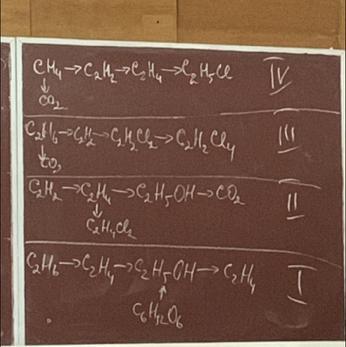 CH₄ → C₂H₂ → C₂H₄ → C₂H₅Cl IV
↓
CO₂
C₂H₆ → C₂H₂ → C₂H₂Cl₂ → C₂H₂Cl₄ III
↓
CO₂
C₂H₂ → C₂H₄ → C₂H₅OH → CO₂ II
↓
C₂H₄Cl₂
C₂H₆ → C₂H₄ → C₂H₅OH → C₂H₄ I
↑
C₆H₁₂O₆